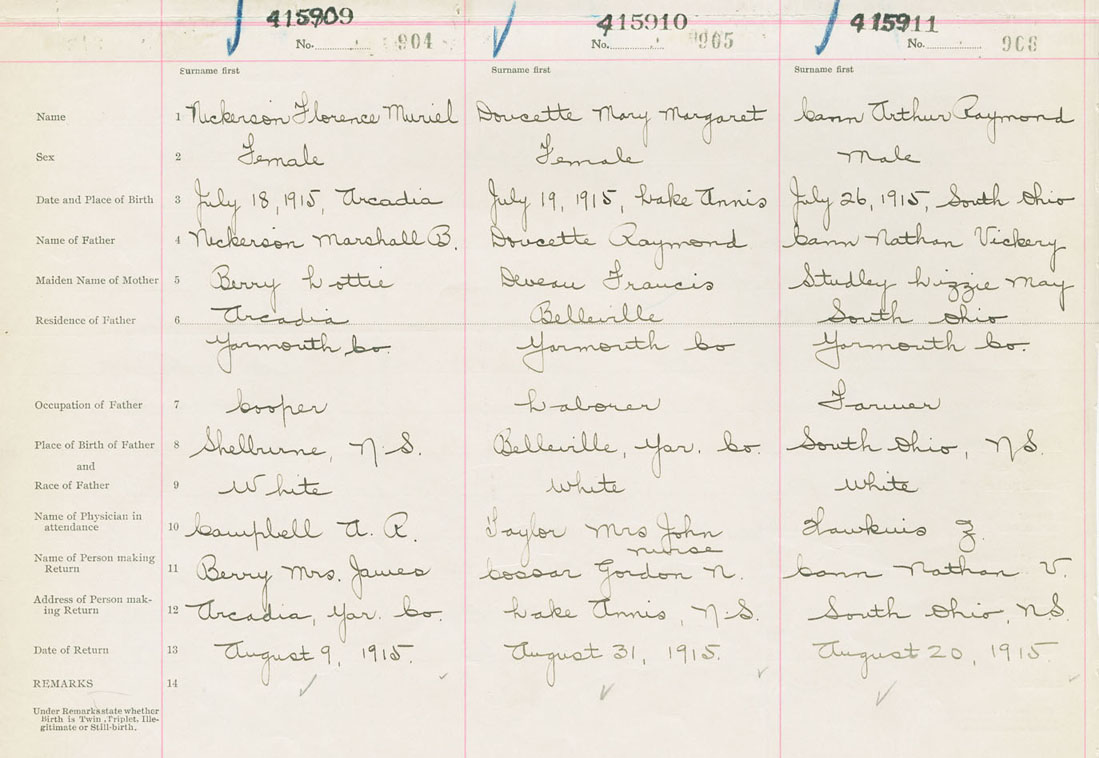 415909 415910 415911
No. 904 No. 905 No. 906
Surname first Surname first Surname first
Name 1 Nickerson Florence Muriel Doucette Mary Margaret Cann Arthur Raymond
Sex 2 Female Female Male
Date and Place of Birth 3 July 18, 1915, Arcadia July 19, 1915, Lake Annis July 26, 1915, South Ohio
Name of Father 4 Nickerson Marshall B. Doucette Raymond Cann Nathan Vickery
Maiden Name of Mother 5 Berry Lottie Deveau Francis Studley Lizzie May
Residence of Father 6 Arcadia Belleville South Ohio
Yarmouth Co. Yarmouth Co Yarmouth Co.
Occupation of Father 7 Cooper Laborer Farmer
Place of Birth of Father 8 Shelburne, N.S. Belleville, Yar. Co. South Ohio, N.S.
and
Race of Father 9 White White White
Name of Physician in
attendance 10 Campbell A. R. Taylor Mrs John Hawkins Z.
nurse
Name of Person making
Return 11 Berry Mrs. James Cossar Gordon N. Cann Nathan V.
Address of Person mak-
ing Return 12 Arcadia, Yar. Co. Lake Annis, N.S. South Ohio, N.S.
Date of Return 13 August 9, 1915. August 31, 1915. August 20, 1915.
REMARKS 14
Under Remarks state whether
Birth is Twin, Triplet, Ille-
gitimate or Still-birth.